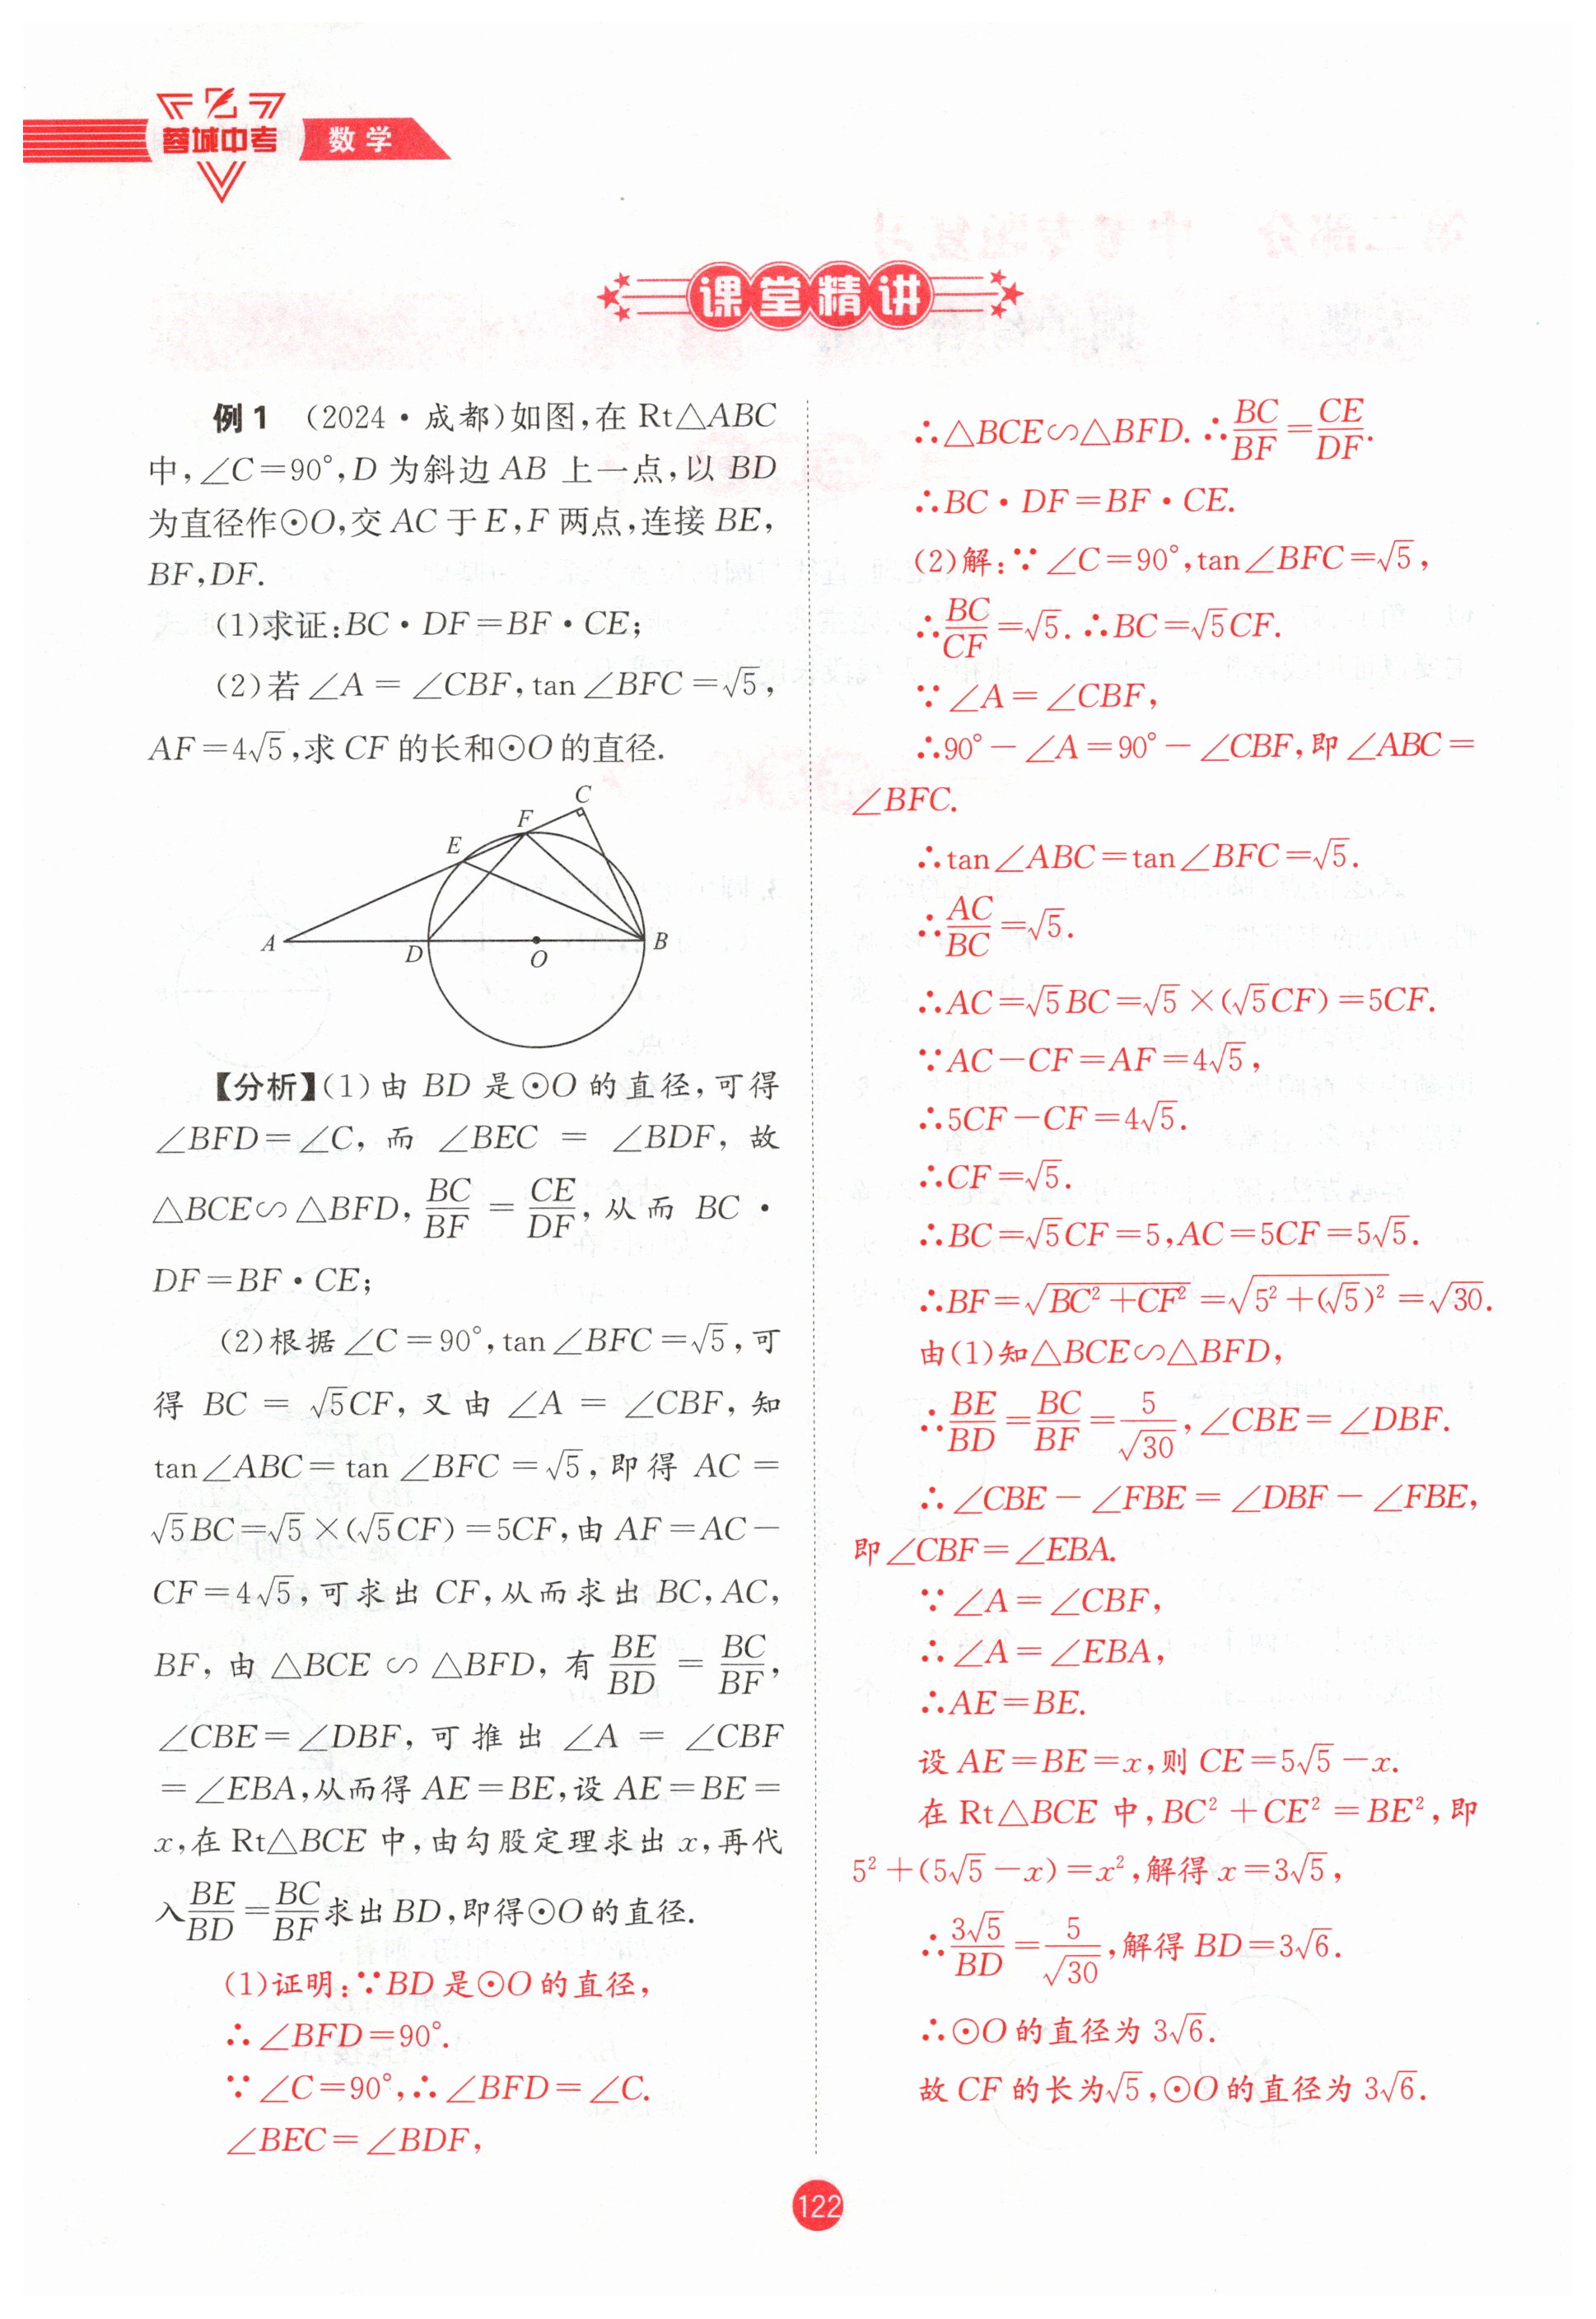 蓉城中考 数学
课堂精讲
例1 (2024·成都)如图,在 Rt△ABC
中,∠C=90°,D 为斜边 AB 上一点,以 BD
为直径作⊙O,交 AC 于 E,F 两点,连接 BE,
BF,DF.
(1)求证:BC·DF=BF·CE;
(2)若∠A=∠CBF,tan∠BFC=√5,
AF=4√5,求 CF 的长和⊙O 的直径.
C
F
E
A
D
O
B
【分析】(1)由 BD 是⊙O 的直径,可得
∠BFD=∠C,而 ∠BEC = ∠BDF,故
△BCE∽△BFD,BC/BF = CE/DF,从而 BC·
DF=BF·CE;
(2)根据∠C=90°,tan∠BFC=√5,可
得 BC = √5CF,又由 ∠A = ∠CBF,知
tan∠ABC=tan∠BFC=√5,即得 AC=
√5BC=√5×(√5CF)=5CF,由 AF=AC-
CF=4√5,可求出 CF,从而求出 BC,AC,
BF,由△BCE∽△BFD,有 BE/BD = BC/BF,
∠CBE=∠DBF,可推出 ∠A = ∠CBF
=∠EBA,从而得 AE=BE,设 AE=BE=
x,在 Rt△BCE 中,由勾股定理求出 x,再代
入BE/BD=BC/BF求出 BD,即得⊙O 的直径.
(1)证明:∵BD 是⊙O 的直径,
∴∠BFD=90°.
∵∠C=90°,∴∠BFD=∠C.
∠BEC=∠BDF,
∴△BCE∽△BFD.∴BC/BF=CE/DF.
∴BC·DF=BF·CE.
(2)解:∵∠C=90°,tan∠BFC=√5,
∴BC/CF=√5.∴BC=√5CF.
∵∠A=∠CBF,
∴90°-∠A=90°-∠CBF,即∠ABC=
∠BFC.
∴tan∠ABC=tan∠BFC=√5.
∴AC/BC=√5.
∴AC=√5BC=√5×(√5CF)=5CF.
∵AC-CF=AF=4√5,
∴5CF-CF=4√5.
∴CF=√5.
∴BC=√5CF=5,AC=5CF=5√5.
∴BF=√(BC²+CF²)=√(5²+(√5)²)=√30.
由(1)知△BCE∽△BFD,
∴BE/BD=BC/BF=5/√30,∠CBE=∠DBF.
∴∠CBE-∠FBE=∠DBF-∠FBE,
即∠CBF=∠EBA.
∵∠A=∠CBF,
∴∠A=∠EBA,
∴AE=BE.
设 AE=BE=x,则 CE=5√5-x.
在 Rt△BCE 中,BC²+CE²=BE²,即
5²+(5√5-x)=x²,解得 x=3√5,
∴3√5/BD=5/√30,解得 BD=3√6.
∴⊙O 的直径为 3√6.
故 CF 的长为√5,⊙O 的直径为 3√6.
122